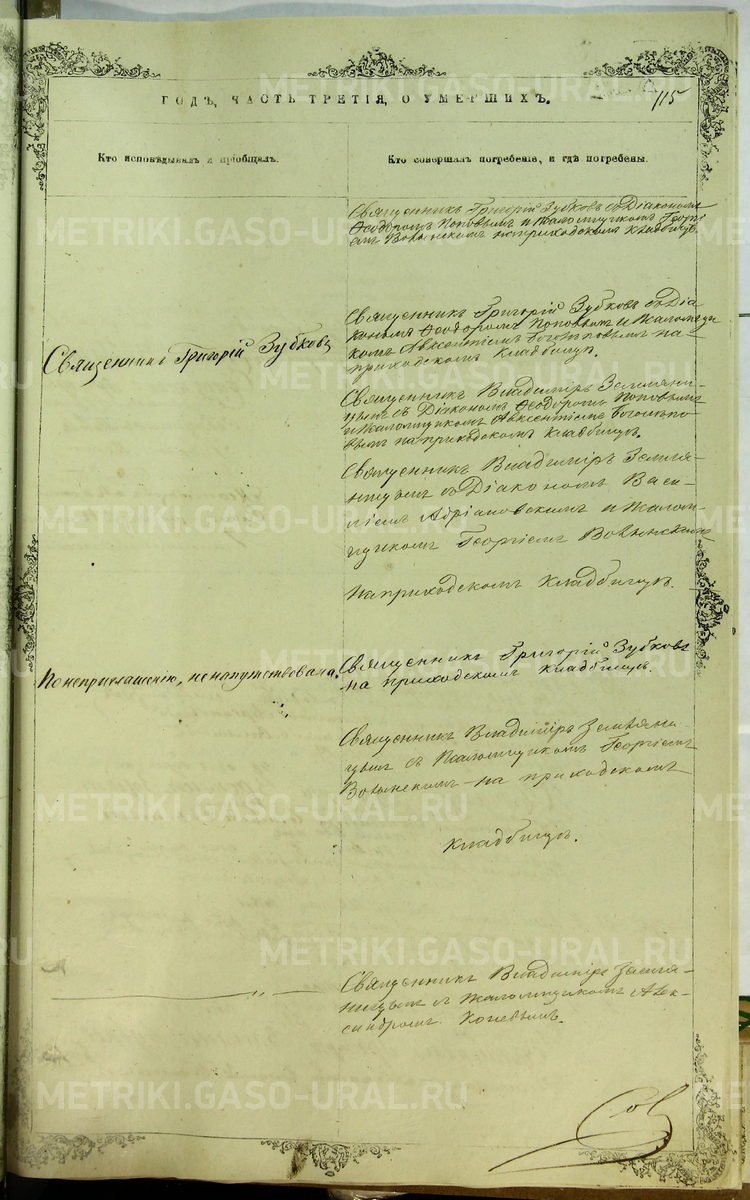 115
ГОДЪ, ЧАСТЬ ТРЕТІЯ, О УМЕРШИХЪ.
Кто исповѣдывалъ и пріобщалъ.
Кто совершалъ погребеніе, и гдѣ погребены.
Священникъ Григорій Зубковъ съ Діакономъ
Ѳеодоромъ Поповымъ и Псаломщикомъ Георгі-
емъ Волынскимъ на приходскомъ кладбищѣ.
Священникъ Григорій Зубковъ
Священникъ Григорій Зубковъ съ Діа-
кономъ Ѳеодоромъ Поповымъ и Псаломщи
комъ Авксентіемъ Боголѣповымъ на-
приходскомъ кладбищѣ.
Священникъ Владиміръ Земляни-
цынъ съ Діакономъ Ѳеодоромъ Поповымъ
и Псаломщикомъ Авксентіемъ Боголѣпо-
вымъ на приходскомъ кладбищѣ.
Священникъ Владиміръ Земля-
ницынъ съ Діакономъ Васи-
ліемъ Адріановскимъ и Псалом-
щикомъ Георгіемъ Волынскимъ
на приходскомъ кладбищѣ.
По неприглашенію, ненапутствована.
Священникъ Григорій Зубковъ
на приходскомъ кладбищѣ.
Священникъ Владиміръ Земляни-
цынъ съ Псаломщикомъ Георгіемъ
Волынскимъ на приходскомъ
кладбищѣ.
Священникъ Владиміръ Земля-
ницынъ съ Псаломщикомъ Алек-
сандромъ Коневымъ.
METRIKI.GASO-URAL.RU